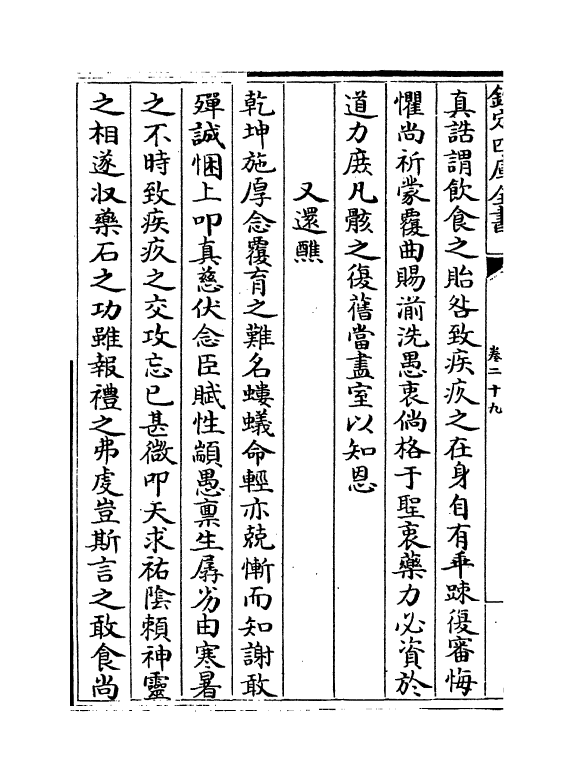 欽定四庫全書
卷二十九
真誥謂飲食之貽咎致疾疢之在身自有乖踈復審悔
懼尚祈蒙覆曲賜湔洗愚衷倘格于聖衷藥力必資於
道力庶凡骸之復舊當盡室以知恩
又還醮
乾坤施厚念覆育之難名螻蟻命輕亦兢慚而知謝敢
殫誠悃上叩真慈伏念臣賦性顓愚禀生孱劣由寒暑
之不時致疾疢之交攻忘已甚微叩天求祐陰頼神靈
之相遂收藥石之功雖報禮之弗虔豈斯言之敢食尚